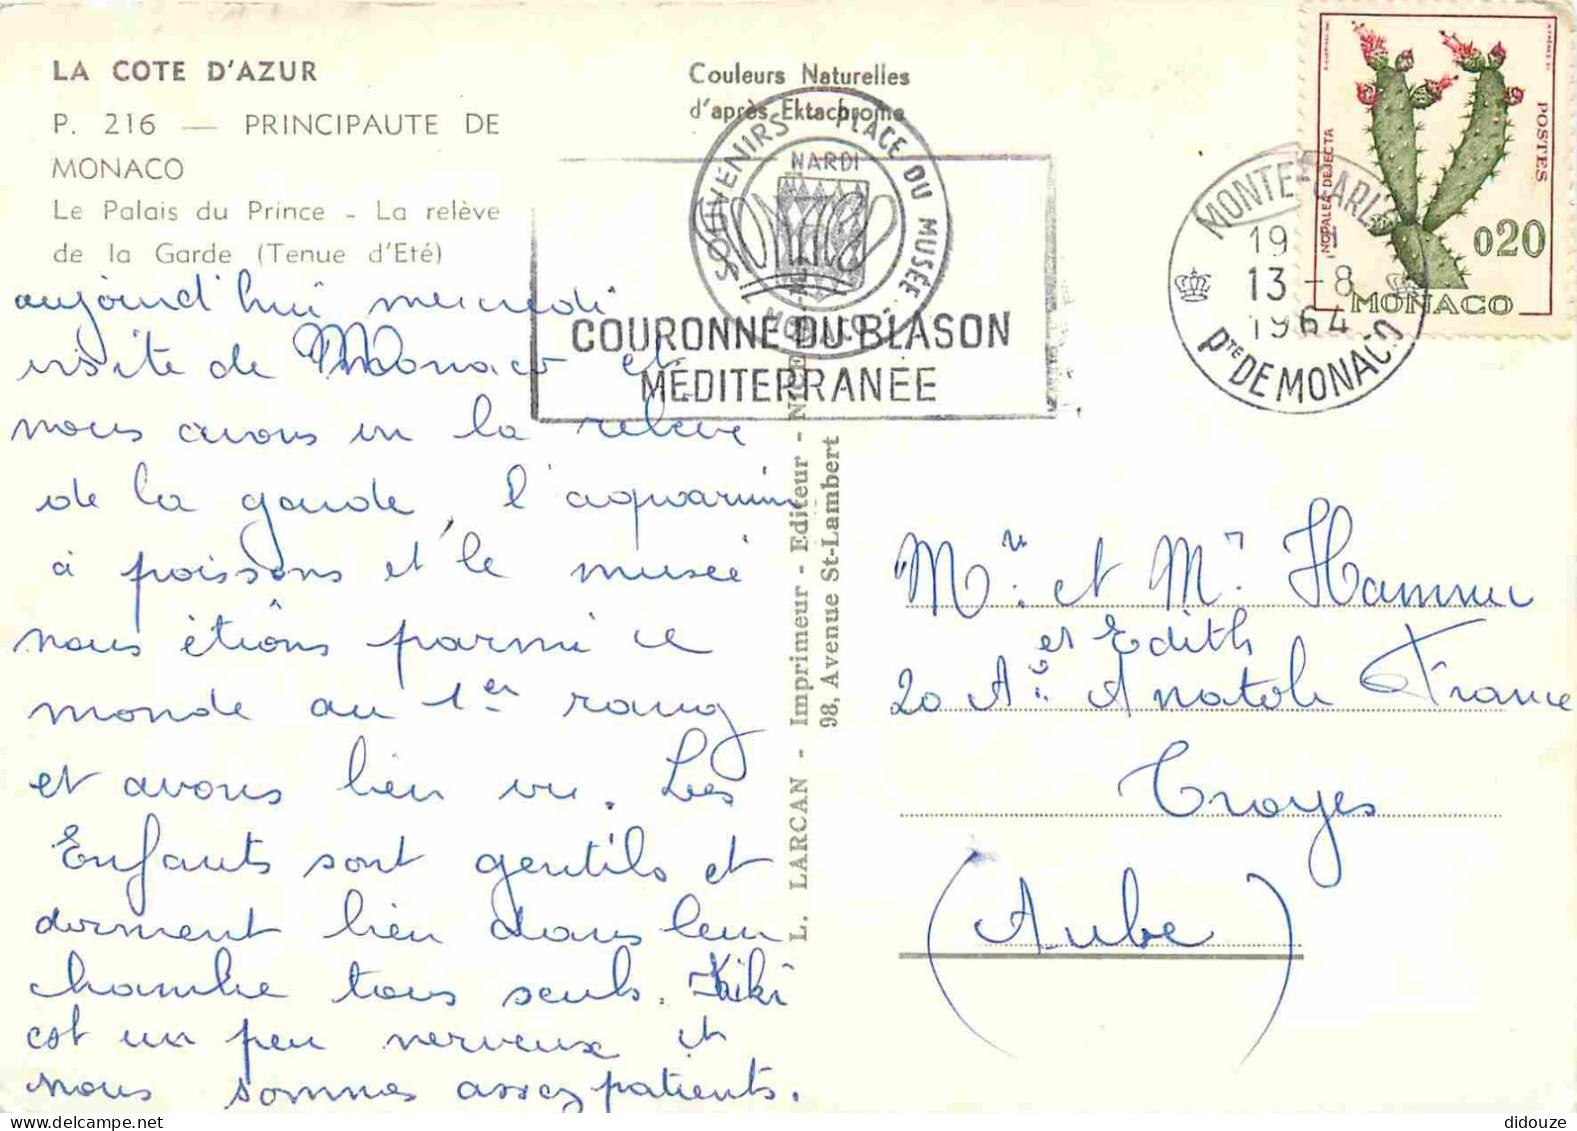 LA COTE D'AZUR
P. 216 — PRINCIPAUTE DE
MONACO
Le Palais du Prince - La relève
de la Garde (Tenue d'Eté)
Couleurs Naturelles
d'après Ektachrome
SOUVENIRS - PLACE DU MUSÉE
NARDI
COURONNE DU BLASON
MÉDITERRANÉE
MONTE-CARLO
19
13 - 8
1964
Pte DE MONACO
NOPALEA DEJECTA
POSTES
020
MONACO
aujourd'hui mercredi
visite de Monaco et
nous avons vu la relève
de la garde, l'aquarium
à poissons et le musée
nous étions parmi le
monde au 1er rang
et avons bien vu. Les
Enfants sont gentils et
dorment bien dans leur
chambre tous seuls. Kiki
est un peu nerveux et
nous sommes assez patients.
L. LARCAN - Imprimeur - Editeur - NICE
98, Avenue St-Lambert
et Edith
20 Anatole France
Troyes
(Aube)
didouze